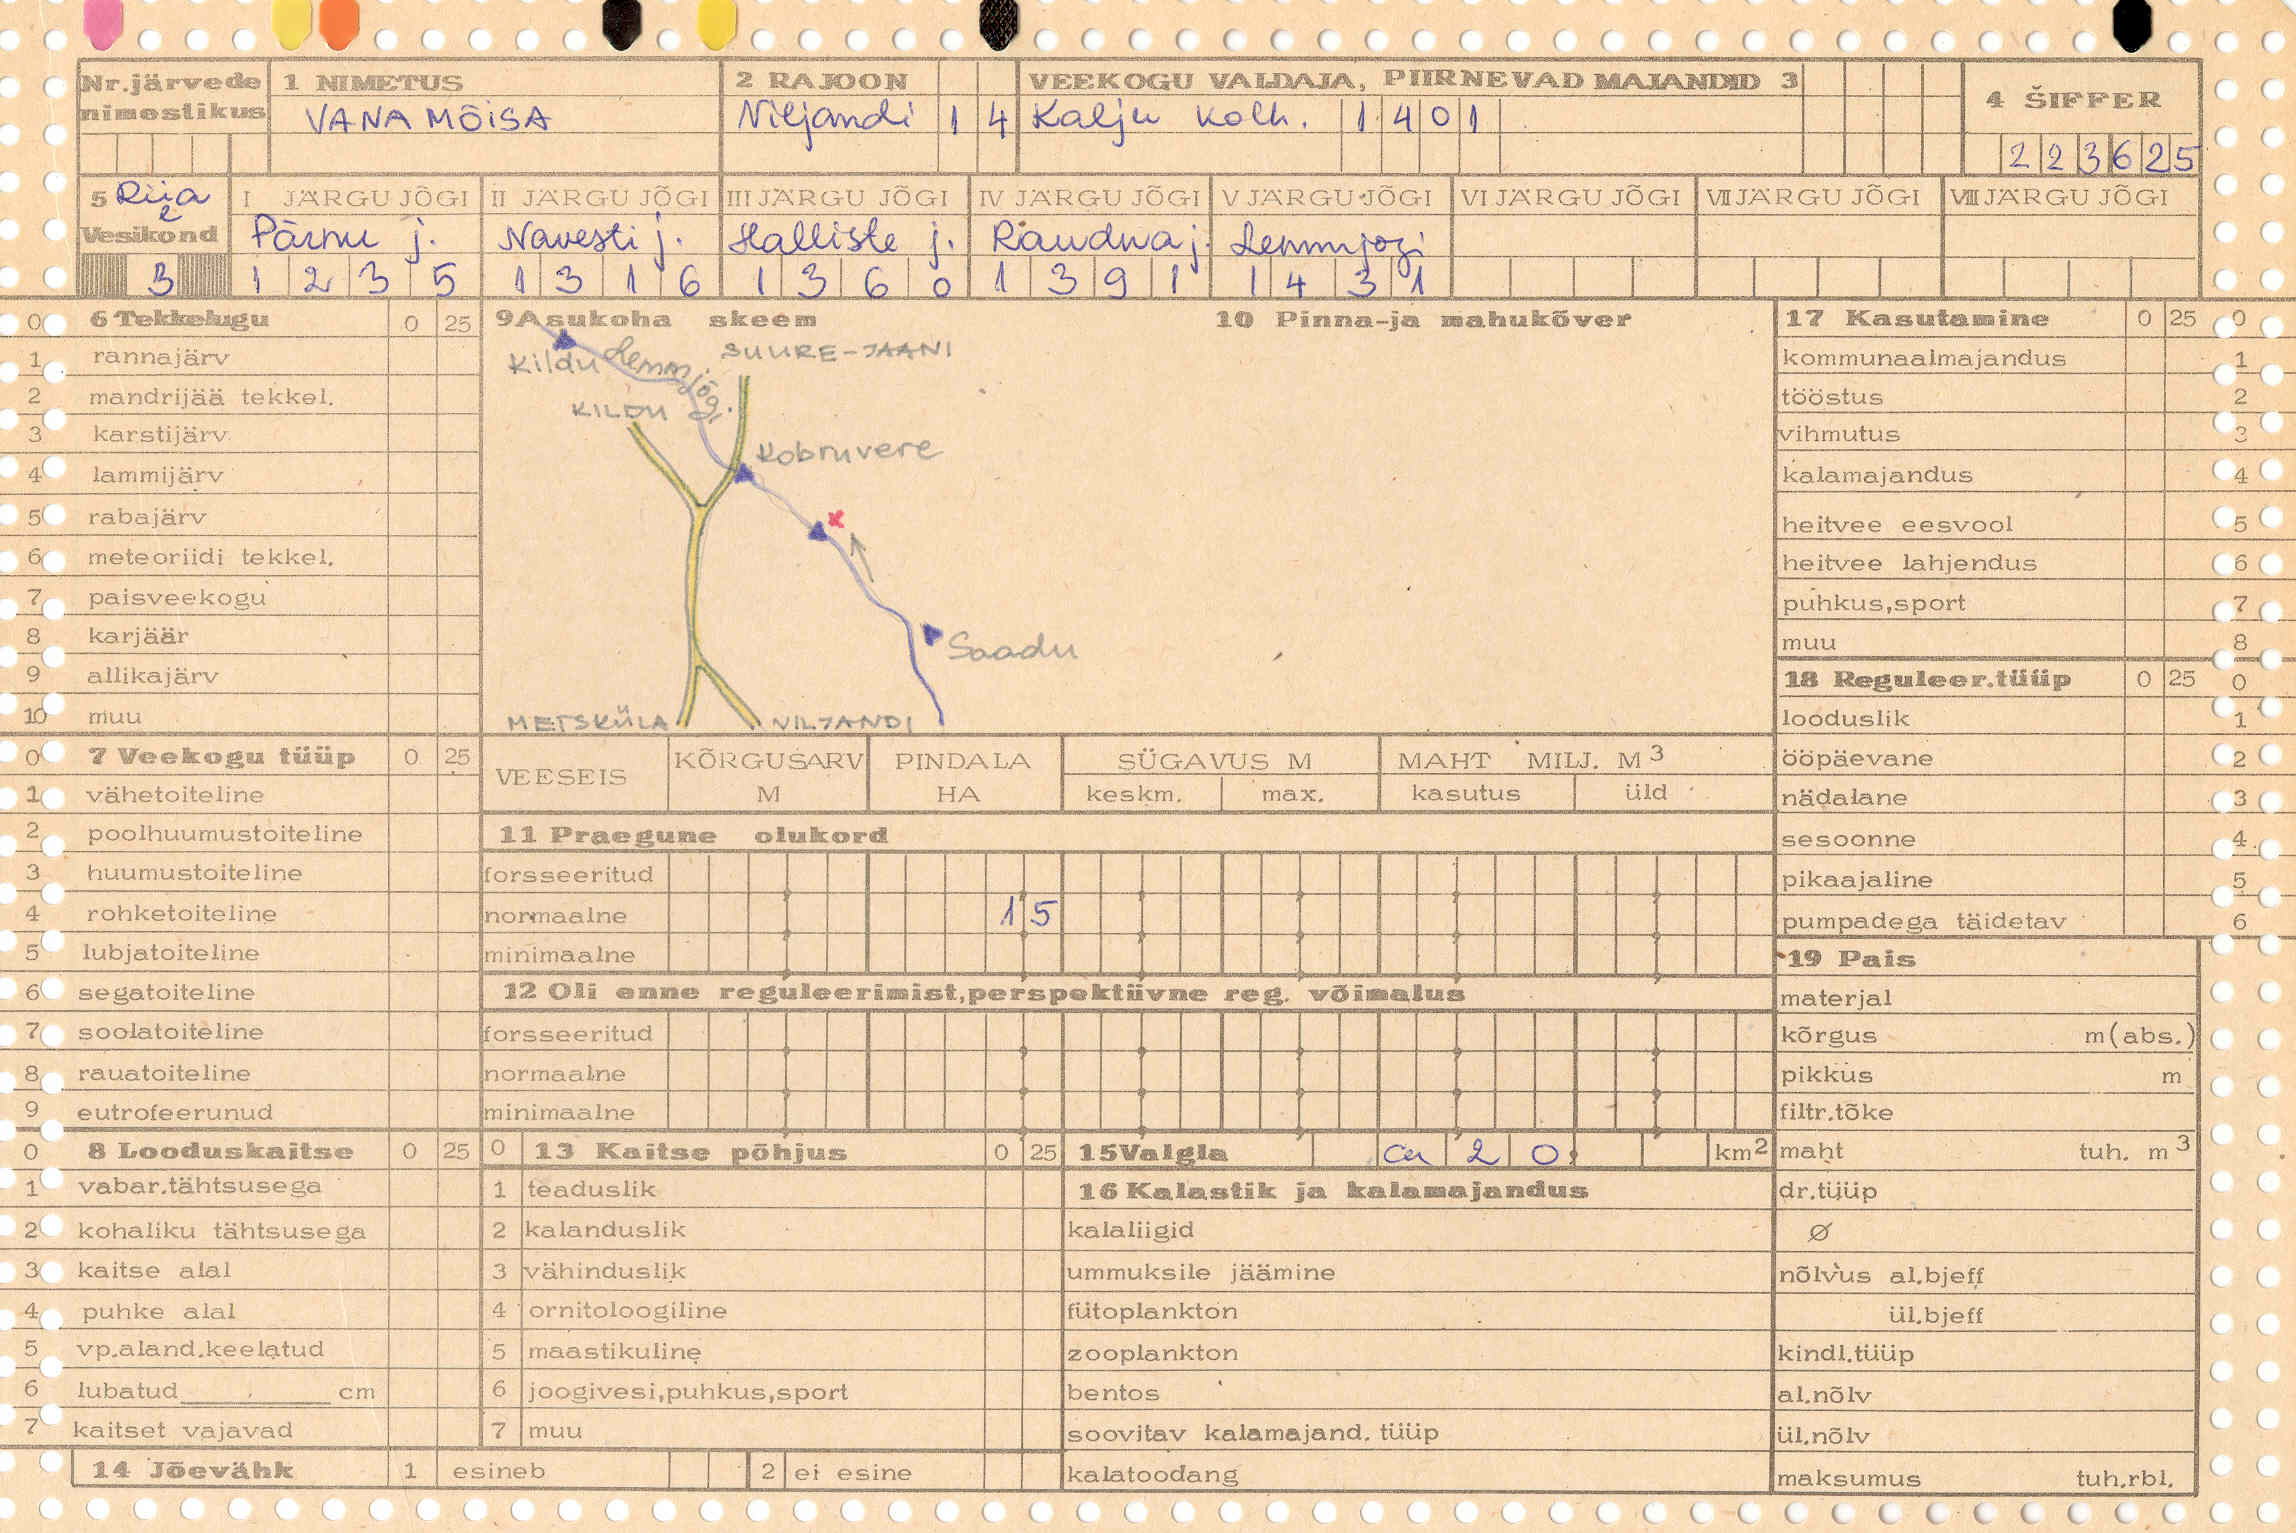 Nr.järvede nimestikus
1 NIMETUS
VANA MÕISA
2 RAJOON
Viljandi 1 4
VEEKOGU VALDAJA, PIIRNEVAD MAJANDID 3
Kalju kolh. 1 4 0 1
4 ŠIFFER
2 2 3 6 2 5
5 Riia 2
Vesikond
3
I JÄRGU JÕGI
Pärnu j.
1 2 3 5
II JÄRGU JÕGI
Navesti j.
1 3 1 6
III JÄRGU JÕGI
Halliste j.
1 3 6 0
IV JÄRGU JÕGI
Raudna j.
1 3 9 1
V JÄRGU JÕGI
Lemmjõgi
1 4 3 1
VI JÄRGU JÕGI
VII JÄRGU JÕGI
VIII JÄRGU JÕGI
0 6 Tekkelugu 0 25
1 rannajärv
2 mandrijää tekkel.
3 karstijärv
4 lammijärv
5 rabajärv
6 meteoriidi tekkel.
7 paisveekogu
8 karjäär
9 allikajärv
10 muu
0 7 Veekogu tüüp 0 25
1 vähetoiteline
2 poolhuumustoiteline
3 huumustoiteline
4 rohketoiteline
5 lubjatoiteline
6 segatoiteline
7 soolatoiteline
8 rauatoiteline
9 eutrofeerunud
0 8 Looduskaitse 0 25
1 vabar.tähtsusega
2 kohaliku tähtsusega
3 kaitse alal
4 puhke alal
5 vp.aland.keelatud
6 lubatud cm
7 kaitset vajavad
14 Jõevähk 1 esineb 2 ei esine
9 Asukoha skeem
Kildu
Lemmjõgi
SUURE-JAANI
KILDU
Kobruvere
x
Saadu
METSKÜLA
VILJANDI
10 Pinna-ja mahukõver
VEESEIS
KÕRGUSARV M
PINDALA HA
SÜGAVUS M
keskm. max.
MAHT MILJ. M3
kasutus üld
11 Praegune olukord
forsseeritud
normaalne 1 5
minimaalne
12 Oli enne reguleerimist,perspektiivne reg. võimalus
forsseeritud
normaalne
minimaalne
0 13 Kaitse põhjus 0 25
1 teaduslik
2 kalanduslik
3 vähinduslik
4 ornitoloogiline
5 maastikuline
6 joogivesi,puhkus,sport
7 muu
15 Valgla ca 2 0 km2
16 Kalastik ja kalamajandus
kalaliigid
ummuksile jäämine
fütoplankton
zooplankton
bentos
soovitav kalamajand. tüüp
kalatoodang
17 Kasutamine 0 25 0
kommunaalmajandus 1
tööstus 2
vihmutus 3
kalamajandus 4
heitvee eesvool 5
heitvee lahjendus 6
puhkus,sport 7
muu 8
18 Reguleer.tüüp 0 25 0
looduslik 1
ööpäevane 2
nädalane 3
sesoonne 4
pikaajaline 5
pumpadega täidetav 6
19 Pais
materjal
kõrgus m(abs.)
pikkus m
filtr.tõke
maht tuh. m3
dr.tüüp
Ø
nõlvus al.bjeff
ül.bjeff
kindl.tüüp
al.nõlv
ül.nõlv
maksumus tuh.rbl.